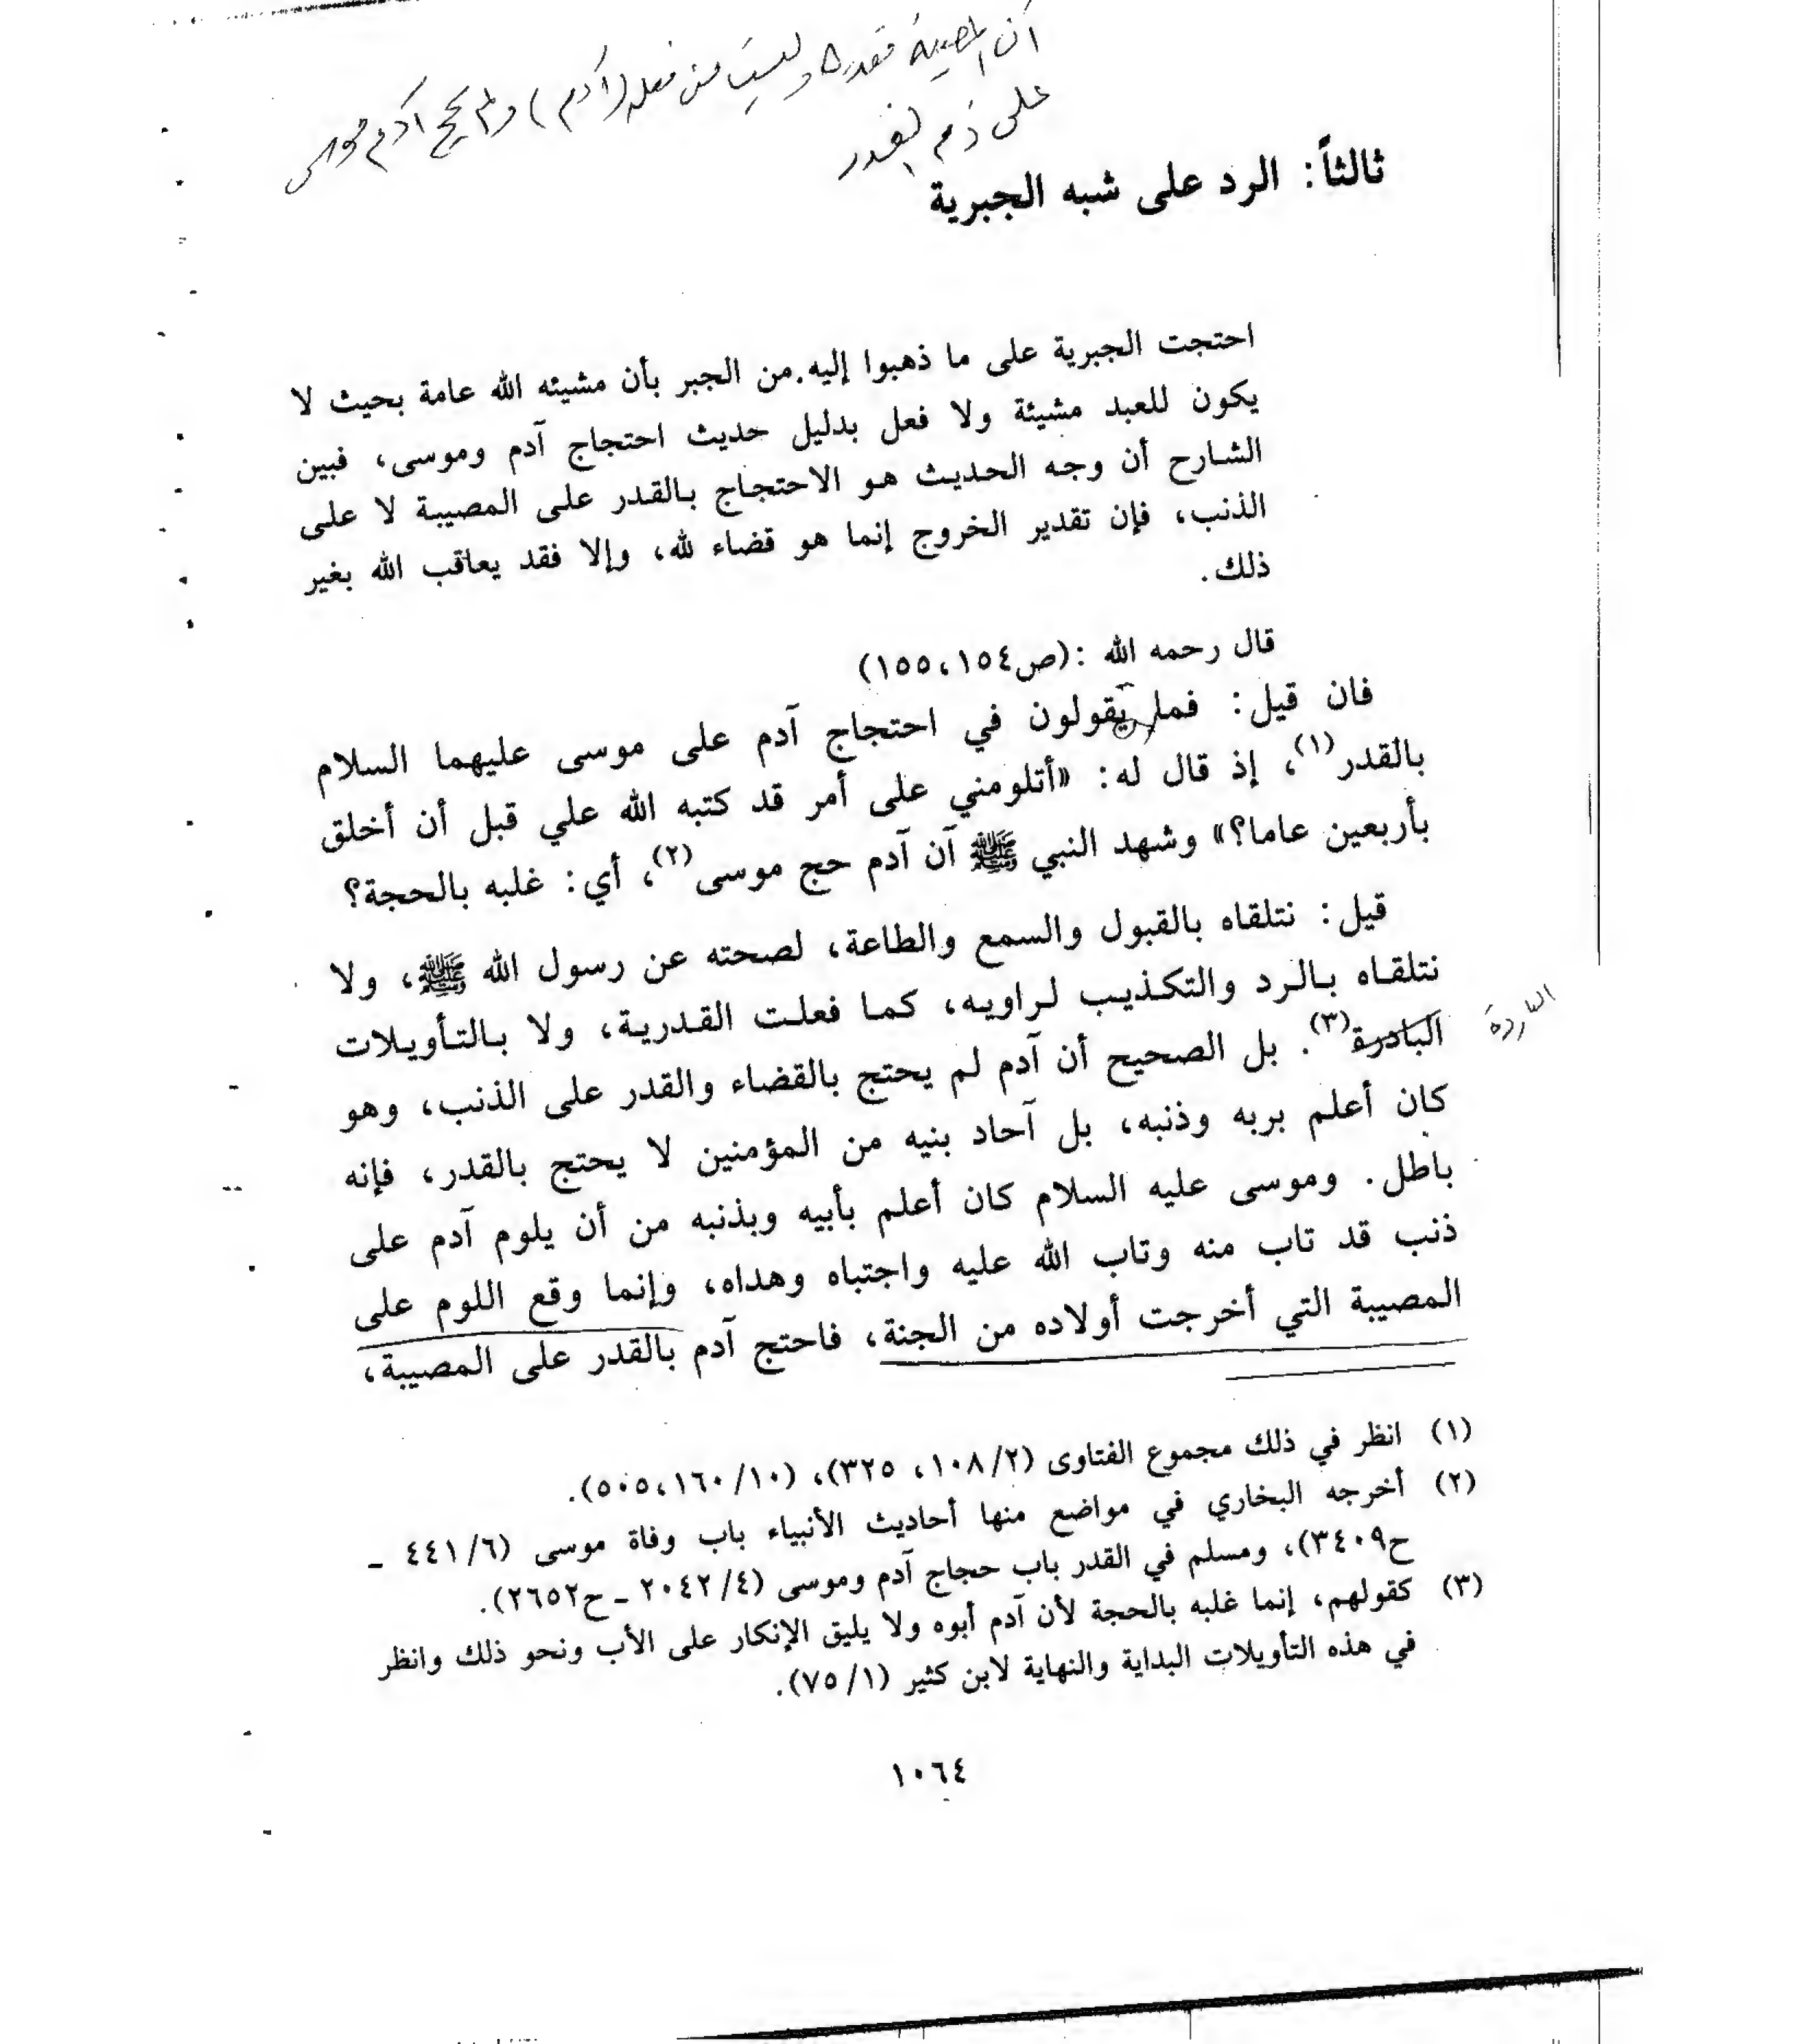 أن المصيبة مقدرة وليست من فعل (آدم) ولم يحج آدم موسى
على ذم القدر
ثالثاً: الرد على شبه الجبرية
احتجت الجبرية على ما ذهبوا إليه.من الجبر بأن مشيئه الله عامة بحيث لا
يكون للعبد مشيئة ولا فعل بدليل حديث احتجاج آدم وموسى، فبين
الشارح أن وجه الحديث هو الاحتجاج بالقدر على المصيبة لا على
الذنب، فإن تقدير الخروج إنما هو قضاء لله، وإلا فقد يعاقب الله بغير
ذلك.
قال رحمه الله :(ص١٥٤،١٥٥)
فان قيل: فما يقولون في احتجاج آدم على موسى عليهما السلام
بالقدر(١)، إذ قال له: «أتلومني على أمر قد كتبه الله علي قبل أن أخلق
بأربعين عاما؟» وشهد النبي ﷺ آن آدم حج موسى(٢)، أي: غلبه بالحجة؟
قيل: نتلقاه بالقبول والسمع والطاعة، لصحته عن رسول الله ﷺ، ولا
نتلقاه بالرد والتكذيب لراويه، كما فعلت القدرية، ولا بالتأويلات
البادرة(٣). بل الصحيح أن آدم لم يحتج بالقضاء والقدر على الذنب، وهو
الباردة
كان أعلم بربه وذنبه، بل آحاد بنيه من المؤمنين لا يحتج بالقدر، فإنه
باطل. وموسى عليه السلام كان أعلم بأبيه وبذنبه من أن يلوم آدم على
ذنب قد تاب منه وتاب الله عليه واجتباه وهداه، وإنما وقع اللوم على
المصيبة التي أخرجت أولاده من الجنة، فاحتج آدم بالقدر على المصيبة،
(١) انظر في ذلك مجموع الفتاوى (١٠٨/٢، ٣٢٥)، (١٠/ ١٦٠،٥٠٥).
(٢) أخرجه البخاري في مواضع منها أحاديث الأنبياء باب وفاة موسى (٤٤١/٦ ـ
ح٣٤٠٩)، ومسلم في القدر باب حجاج آدم وموسى (٢٠٤٢/٤ ـ ح٢٦٥٢).
(٣) كقولهم، إنما غلبه بالحجة لأن آدم أبوه ولا يليق الإنكار على الأب ونحو ذلك وانظر
في هذه التأويلات البداية والنهاية لابن كثير (٧٥/١).
١٠٦٤